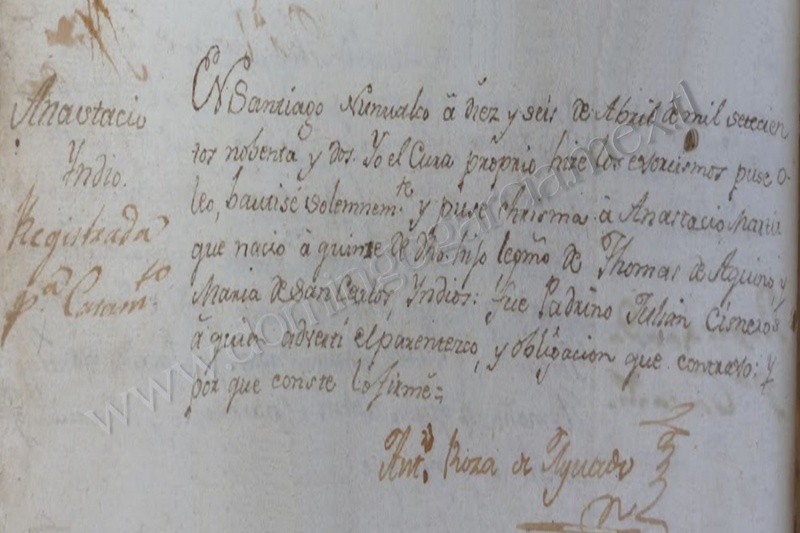 Anastacio
Yndio.
Registrada
pᵃ Casamᵗᵒ
EN Santiago Nunualco â diez y seis de Abril de mil setecien
tos nobenta y dos. Yo el Cura proprio hize los exorcismos puse o-
leo, bautisé solemnemᵗᵉ y puse chrisma â Anastacio Maria
que nacio â quinze de dho. hijo legmô de Thomas de Aquino y
Maria de San Carlos Yndios: fue Padrino Julian Cisneros
â quien adverti el parentezco, y obligacion que contraxo: y
por que conste lo firmé=
Antᵒ. Roza de Aguado
www.domingogarciamex.tl